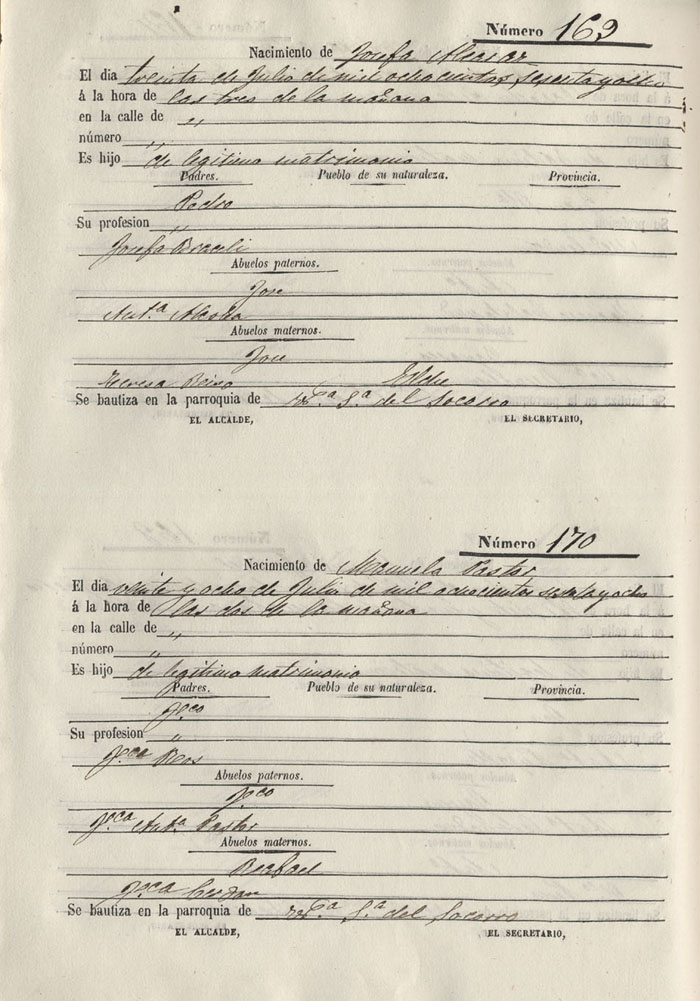 Número 169
Nacimiento de Josefa Alcaar
El dia treinta de Julio de mil ochocientos sesenta y ocho
á la hora de las tres de la mañana
en la calle de „
número „
Es hijo de legitimo matrimonio
Padres. Pueblo de su naturaleza. Provincia.
Pedro
Su profesion „
Josefa
Abuelos paternos.
Jose
Ant.ª
Abuelos maternos.
Jose
Teresa
Elche
Se bautiza en la parroquia de S.ª del Socorro
EL ALCALDE, EL SECRETARIO,
Número 170
Nacimiento de Manuela Pastor
El dia veinte y ocho de Julio de mil ochocientos sesenta y ocho
á la hora de las dos de la mañana
en la calle de „
número „
Es hijo de legitimo matrimonio
Padres. Pueblo de su naturaleza. Provincia.
Fco
Su profesion „
Fca
Abuelos paternos.
Fco
Fca Ant.ª Pastor
Abuelos maternos.
Rafael
Fca Cerdan
Se bautiza en la parroquia de S.ª del Socorro
EL ALCALDE, EL SECRETARIO,